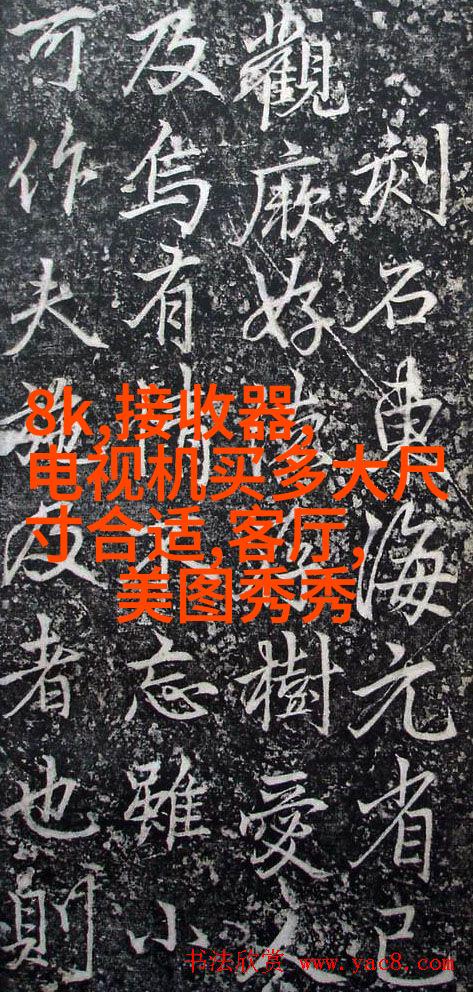 刻石東海元省己
觀厥好樹愛
及烏有情忘雖小
可作夫施及者也則
8k,接收器,
电视机买多大尺
寸合适,客厅,
美图秀秀
书法欣赏 www.yac8.com